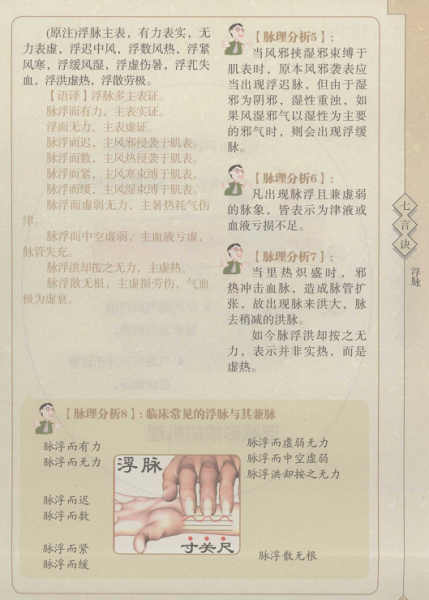 (原注)浮脉主表，有力表实，无
力表虚，浮迟中风，浮数风热，浮紧
风寒，浮缓风湿，浮虚伤暑，浮芤失
血，浮洪虚热，浮散劳极。
【语译】浮脉多主表证。
脉浮而有力，主表实证。
浮而无力，主表虚证。
脉浮而迟，主风邪侵袭于肌表。
脉浮而数，主风热侵袭于肌表。
脉浮而紧，主风寒束缚于肌表。
脉浮而缓，主风湿束缚于肌表。
脉浮而虚弱无力，主暑热耗气伤
津。
脉浮而中空虚弱，主血液亏虚，
脉管失充。
脉浮洪却按之无力，主虚热。
脉浮散无根，主虚损劳伤，气血
极为虚衰。
【脉理分析5】：
当风邪挟湿邪束缚于
肌表时，原本风邪袭表应
当出现浮迟脉，但由于湿
邪为阴邪，湿性重浊，如
果风湿邪气以湿性为主要
的邪气时，则会出现浮缓
脉。
【脉理分析6】：
凡出现脉浮且兼虚弱
的脉象，皆表示为津液或
血液亏损不足。
【脉理分析7】：
当里热炽盛时，邪
热冲击血脉，造成脉管扩
张，故出现脉来洪大，脉
去稍减的洪脉。
如今脉浮洪却按之无
力，表示并非实热，而是
虚热。
七言诀
浮脉
【脉理分析8】：临床常见的浮脉与其兼脉
脉浮而有力
脉浮而无力
脉浮而迟
脉浮而数
脉浮而紧
脉浮而缓
浮脉
寸关尺
脉浮而虚弱无力
脉浮而中空虚弱
脉浮洪却按之无力
脉浮散无根